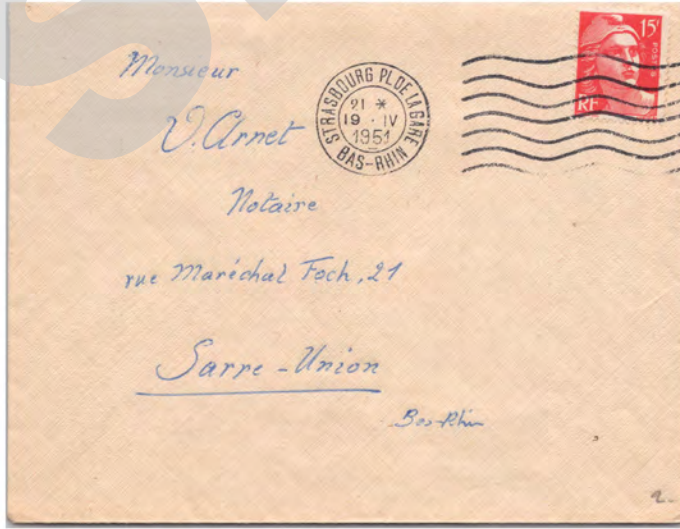 Monsieur
V. Arnet
Notaire
rue Maréchal Foch, 21
Sarre-Union
Bas-Rhin
STRASBOURG PL. DE LA GARE
21 *
19 · IV
1951
BAS-RHIN
15F
POSTES
RF
2.-